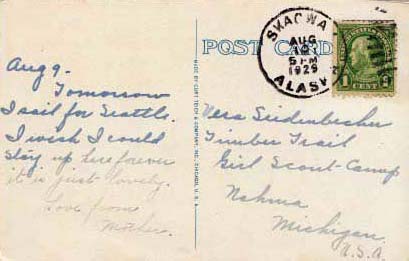 POST CARD
SKAGWAY
AUG
10
5 PM
1929
ALASKA
1 CENT 1
Aug 9.
Tomorrow
I sail for Seattle.
I wish I could
stay up here forever
it is just lovely.
Love from
Mother.
Vera Seidenbecker
Timber Trail
Girl Scout Camp
Nahma
Michigan.
U.S.A.
MADE BY CURT TEICH & COMPANY, INC., CHICAGO, U.S.A.